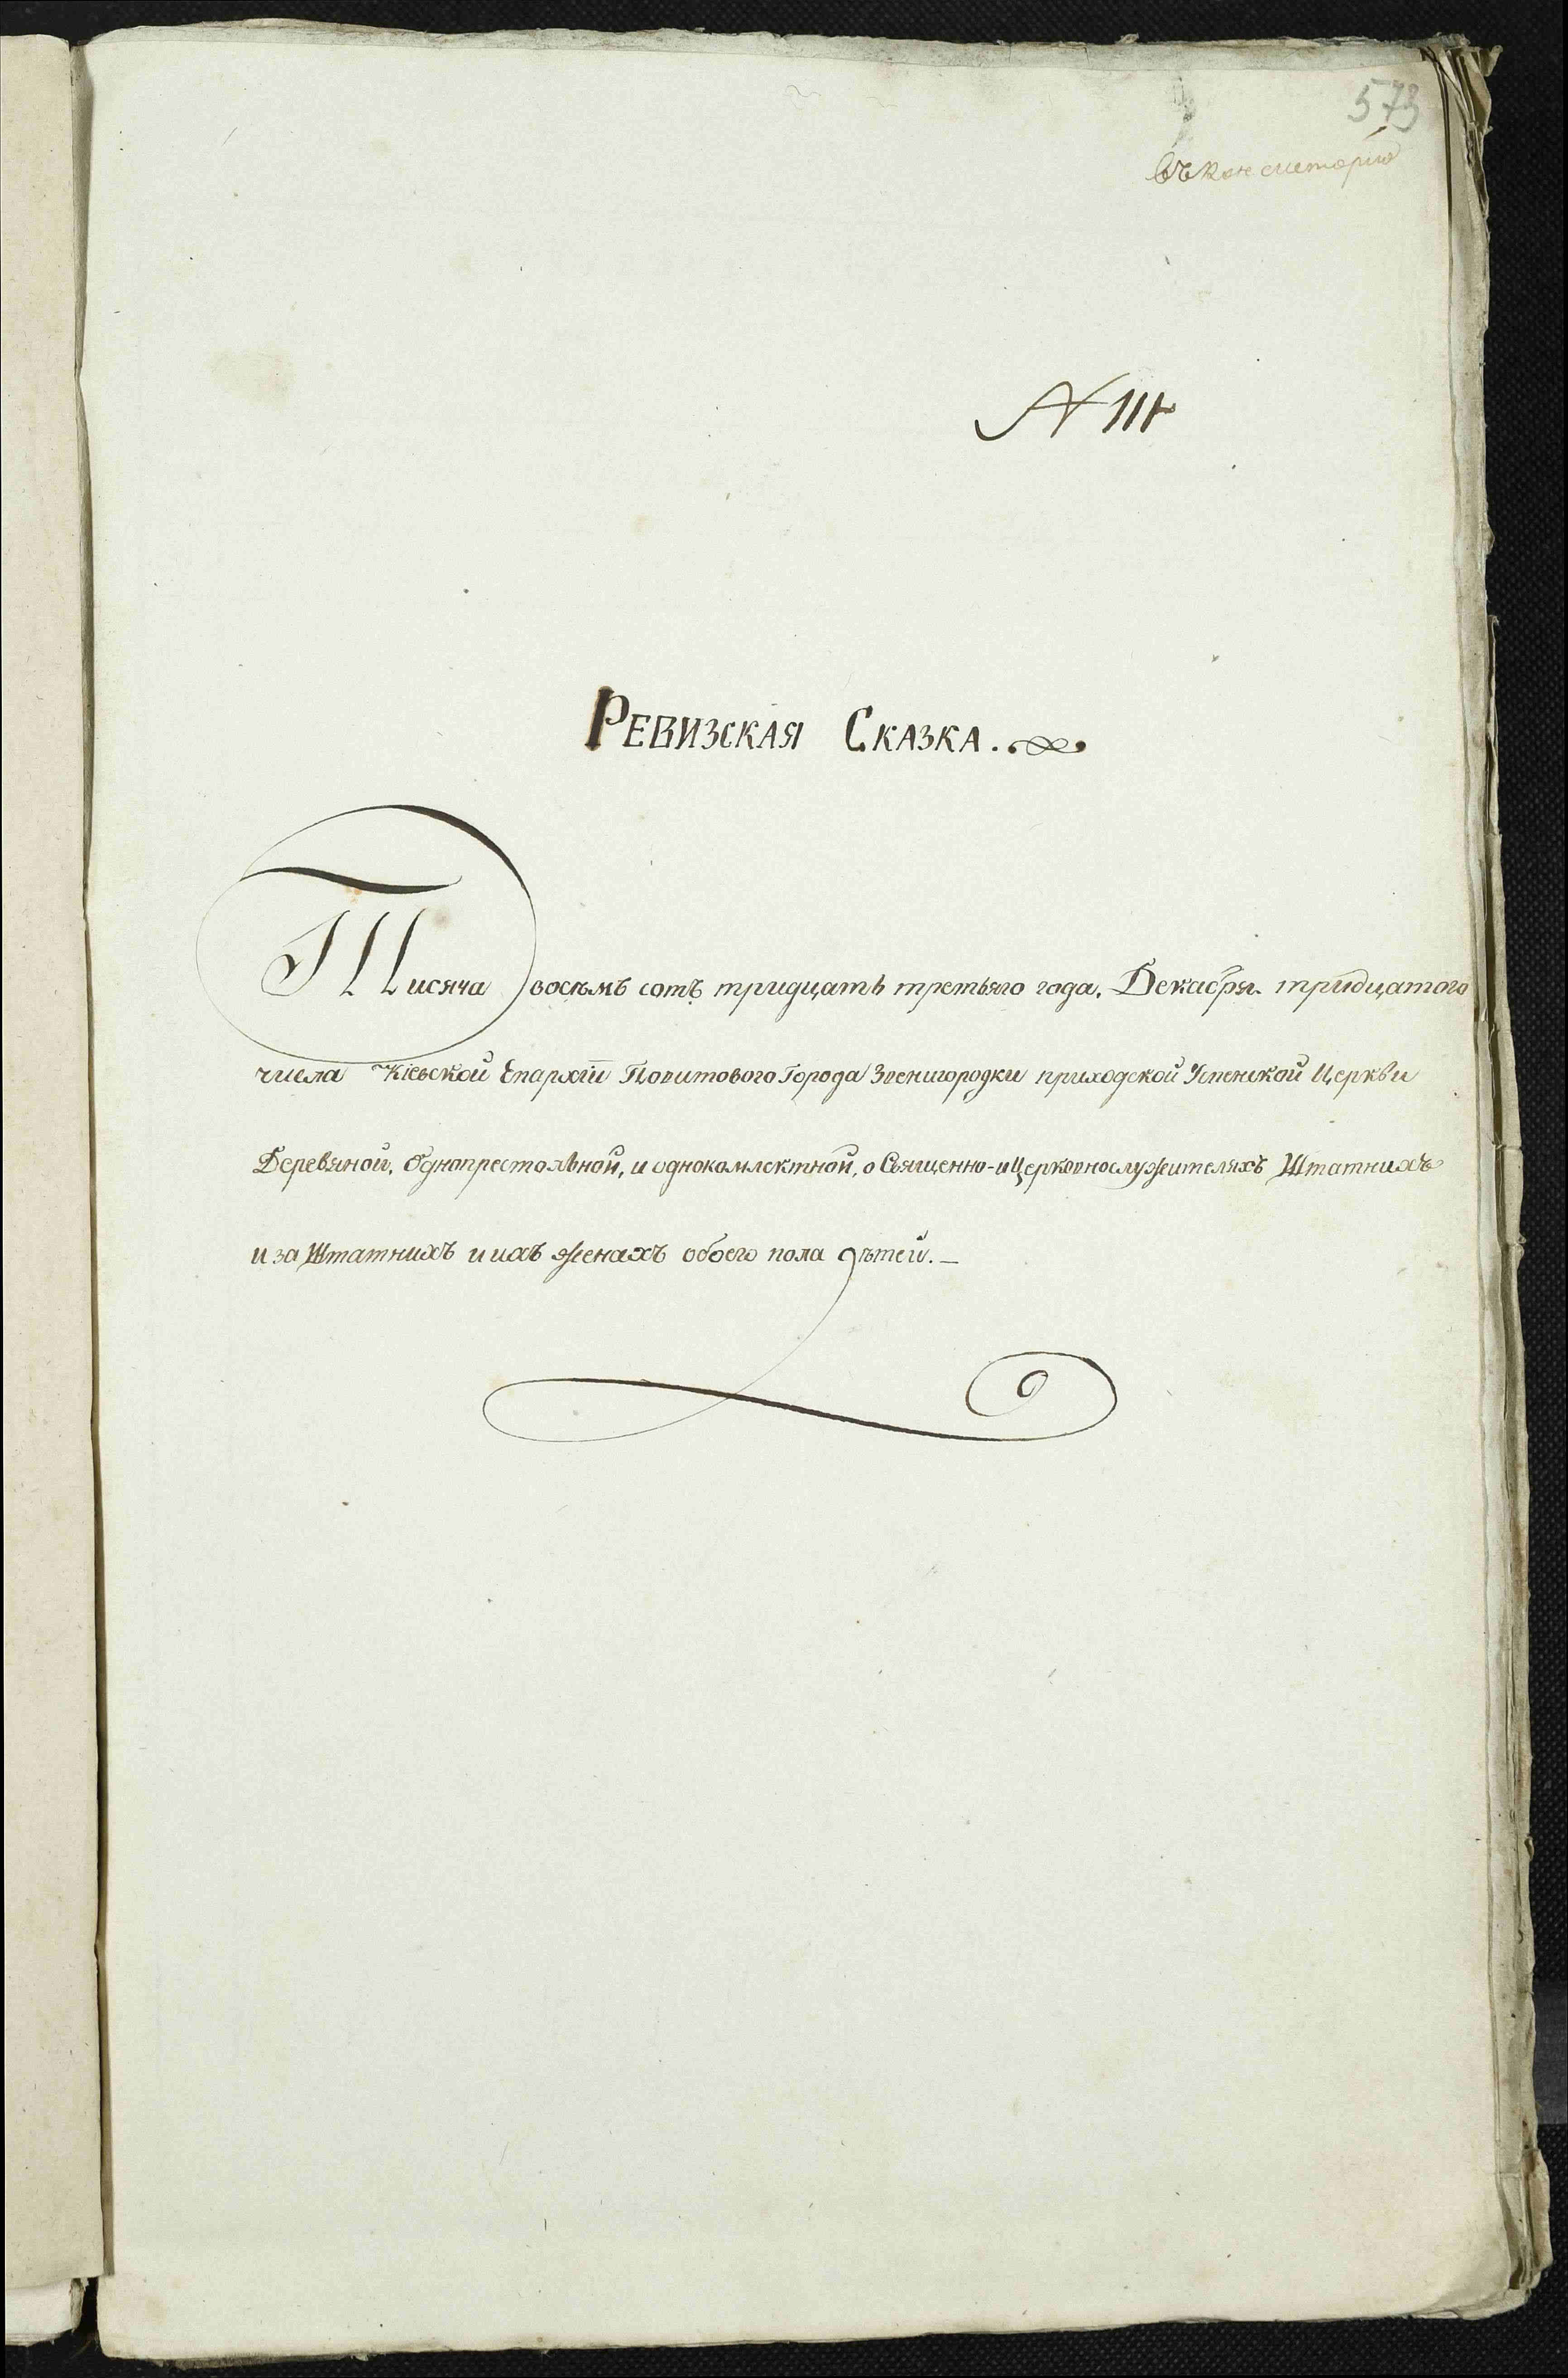 573
въ консисторію
N 111
Ревизская Сказка.
Тисяча восѣмъ сотъ тридцать третьяго года, Декабря тридцатого
числа Кіевской Епархіи Повитового Города Звенигородки приходской Успенской Церкви
Деревяной, Однопрестольной, и однокомлектной, о Священно-и Церковнослужителяхъ Штатнихъ
и за Штатнихъ и ихъ женахъ обоего пола дѣтей.—